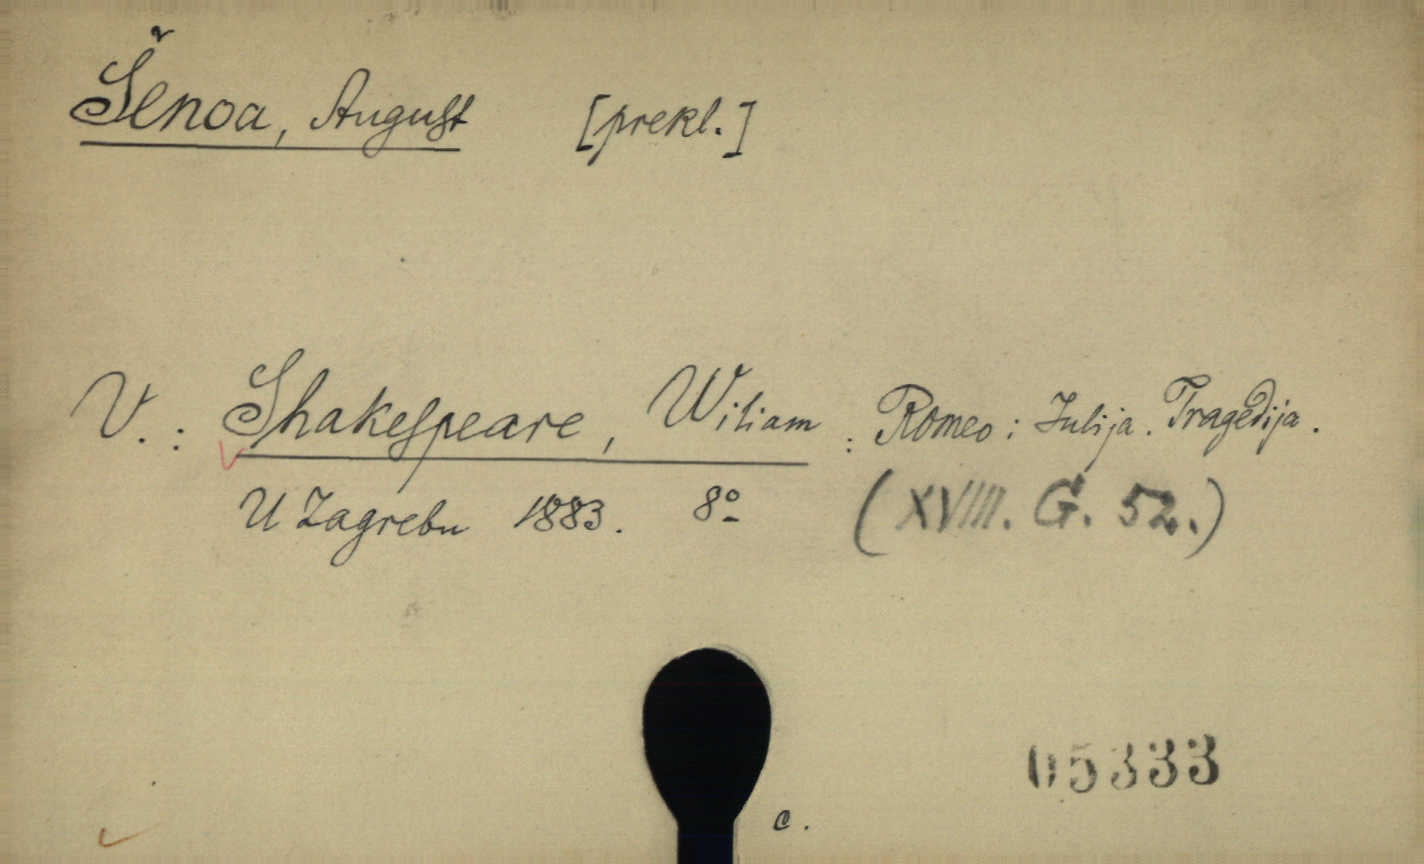 Šenoa, August [prekl.]
V.: Shakespeare, Wiliam: Romeo i Julija. Tragedija.
U Zagrebu 1883. 8º (XVIII. G. 52.)
05333
c.